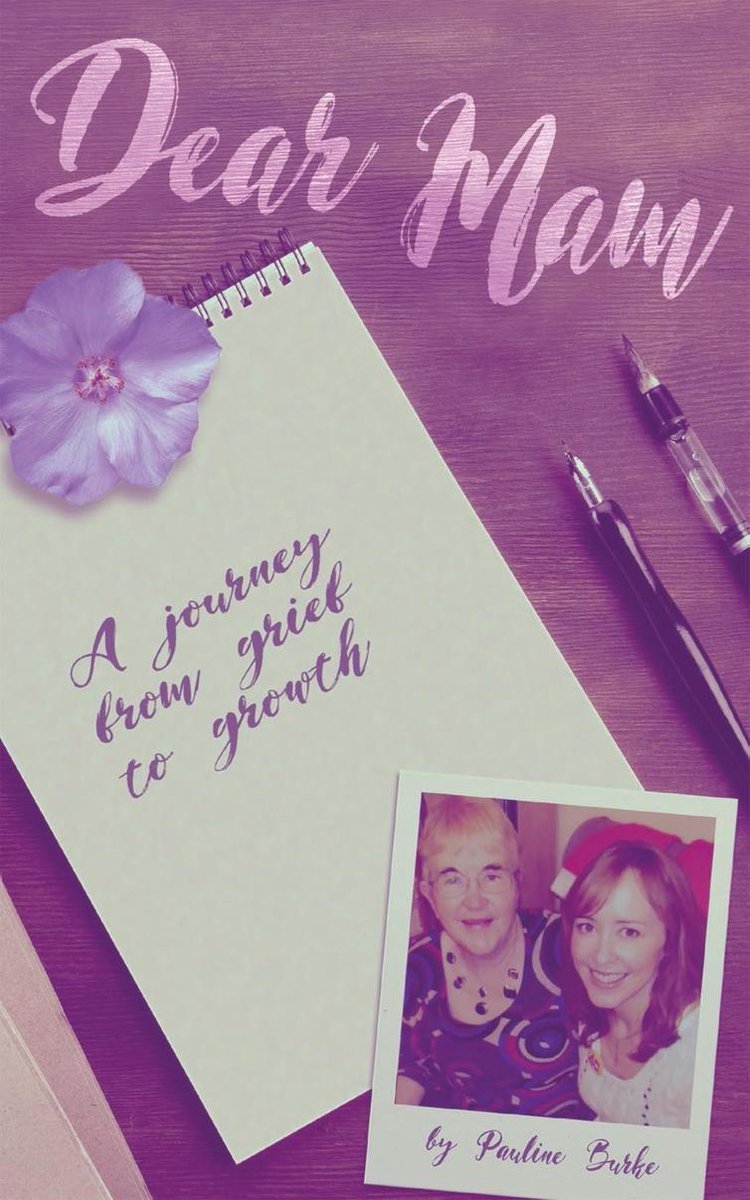 Dear Mam
A journey
from grief
to growth
by Pauline Burke